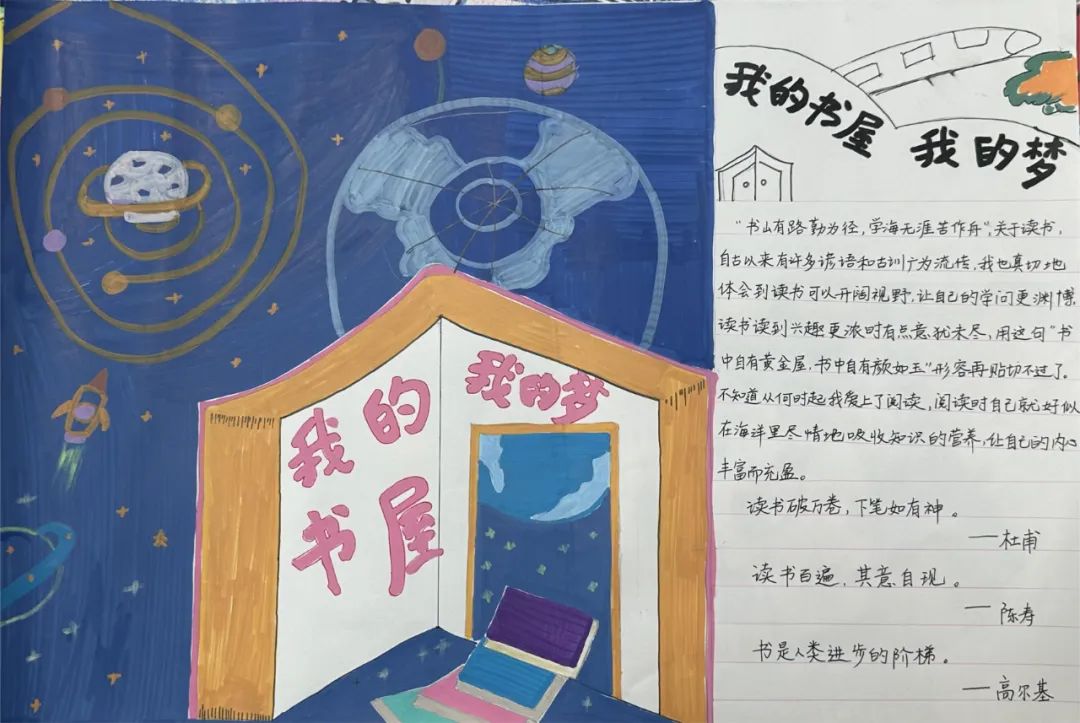 我的
书屋
我的梦
我的书屋
我的梦
“书山有路勤为径，学海无涯苦作舟”，关于读书，
自古以来有许多谚语和古训广为流传，我也真切地
体会到读书可以开阔视野，让自己的学问更渊博。
读书读到兴趣更浓时有点意犹未尽，用这句“书
中自有黄金屋，书中自有颜如玉”形容再贴切不过了。
不知道从何时起我爱上了阅读，阅读时自己就好似
在海洋里尽情地吸收知识的营养，让自己的内心
丰富而充盈。
读书破万卷，下笔如有神。
——杜甫
读书百遍，其意自现。
——陈寿
书是人类进步的阶梯。
——高尔基